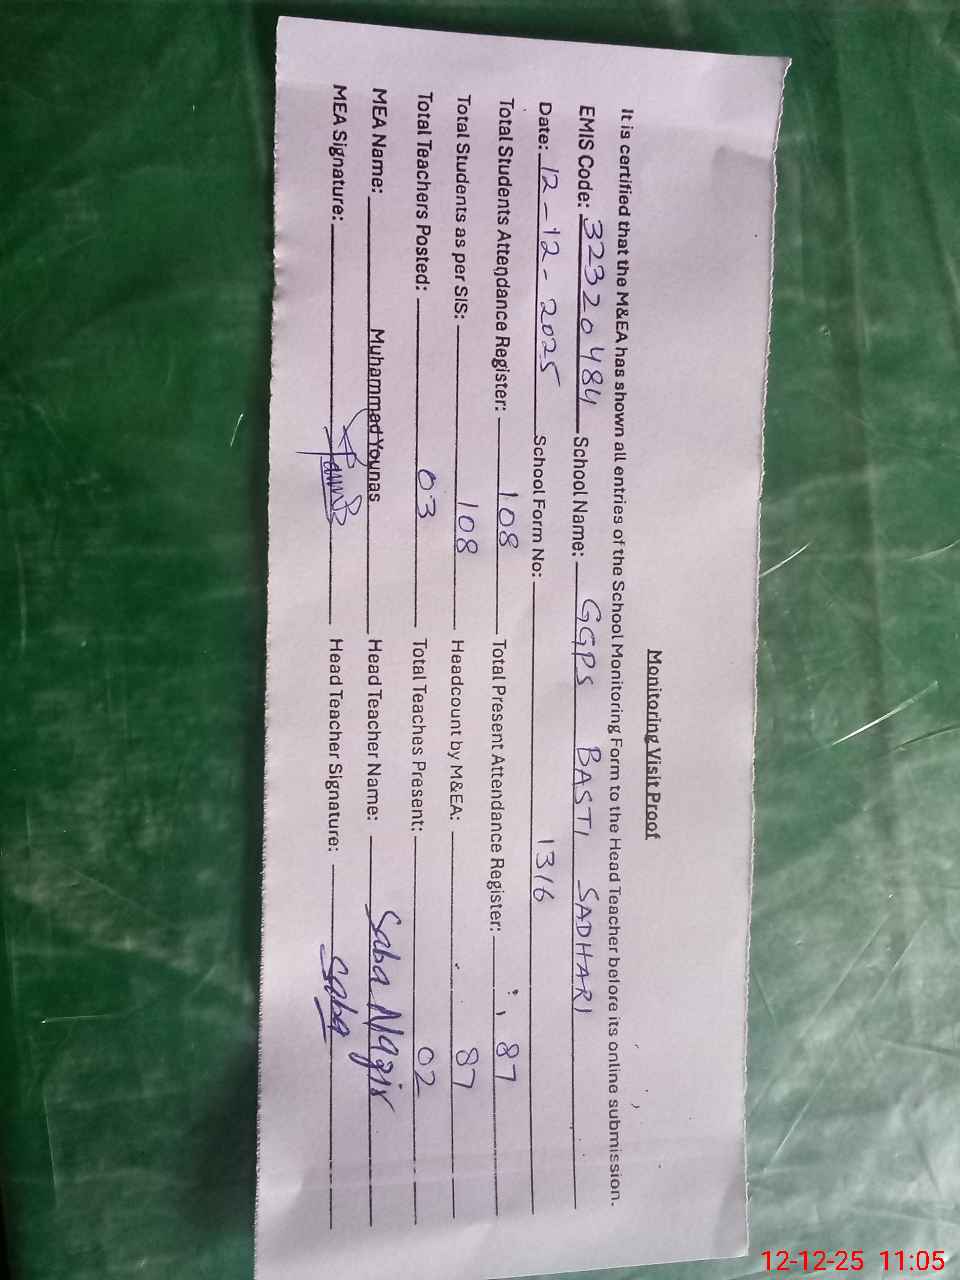 Monitoring Visit Proof
It is certified that the M&EA has shown all entries of the School Monitoring Form to the Head Teacher before its online submission.
EMIS Code: 32320484 School Name: GGPS BASTI SADHARI
Date: 12-12-2025 School Form No: 1316
Total Students Attendance Register: 108 Total Present Attendance Register: 87
Total Students as per SIS: 108 Headcount by M&EA: 87
Total Teachers Posted: 03 Total Teaches Present: 02
MEA Name: Muhammad Younas Head Teacher Name: Saba Nazir
MEA Signature: Head Teacher Signature: Saba
12-12-25 11:05